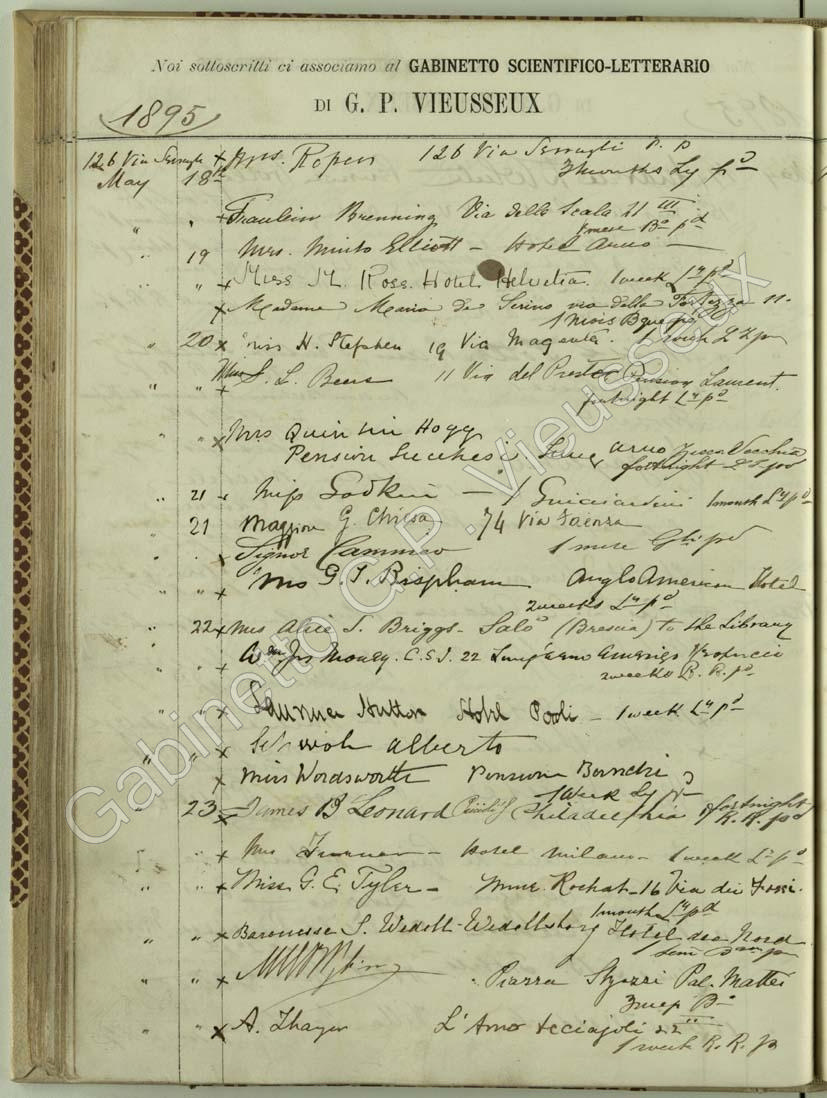 Noi sottoscritti ci associamo al GABINETTO SCIENTIFICO-LETTERARIO
DI G. P. VIEUSSEUX
1895
126 Via Serragli × Mrs. Ropes 126 Via Serragli P. P
May 18th 3 months Ly pd
" + Fraulein Brenning Via della Scala 21 III
1 mese Bo pd
" 19 Mrs. Minto Elliott – Hotel Arno –
" + Miss M. Ross. Hotel Helvetia. 1 week Ly pd
× Madame Maria de Serino via della Fortezza 11.
1 Mois
" 20 × Miss H. Stephen 19 Via Magenta. 1 month
" " + S. L. Beers 11 Via del Presto Pension Laurent.
fortnight Ly pd
" × Mrs Quintin Hogg
Pension Lucchesi. Lung Arno Zecca Vecchia
fortnight
" 21 Miss Godkin – 1 Guicciardini 1 month Ly pd
21 Maggiore G. Chiesa 74 Via Faenza
× Signor 1 mese pd
" + Mrs G. T. Bispham Anglo American Hotel
2 weeks Ly pd
" 22 × Mrs Alice S. Briggs – Salò (Brescia) to the Library
" + Money. C.S.I. 22 Lung'arno Amerigo Vespucci
2 weeks R. R. pd
" " × Laurence Hutton Hotel Paoli – 1 week Ly pd
" " × Alberto
× Miss Wordsworth Pensione
1 Week Ly pd
23 × James B Leonard Philadelphia fortnight
R. R. pd
" × Mrs Turner – Hotel Milano – 1 week Ly pd
" " × Miss G. E. Tyler – Mme. Rochat – 16 Via dei Fossi.
1 month Ly pd
" " × Baronesse S. Wedell-Wedellsborg Hotel du Nord
" " × Piazza Pal. Mattei
" " × A. Thayer L'Arno Acciajoli 22
1 week R. R. p
Gabinetto G.P. Vieusseux